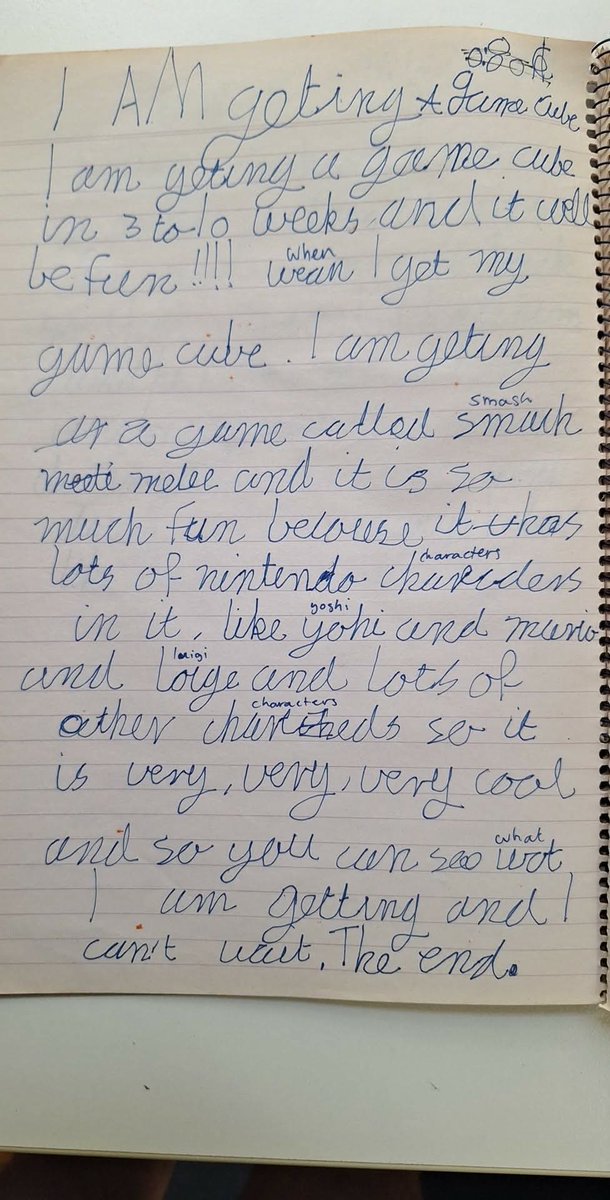 I AM geting A game cube
I am geting a game cube
in 3 to 10 weeks and it will
be fun !!!! wean I get my
when
game cube. I am geting
a game called smach
smash
melee and it is so
much fun becouse it has
lots of nintendo charcders
characters
in it, like yohi and mario
yoshi
and loige and lots of
luigi
other charitheds so it
characters
is very, very, very cool
and so you can see wot
what
I am getting and I
can't wait. The end.